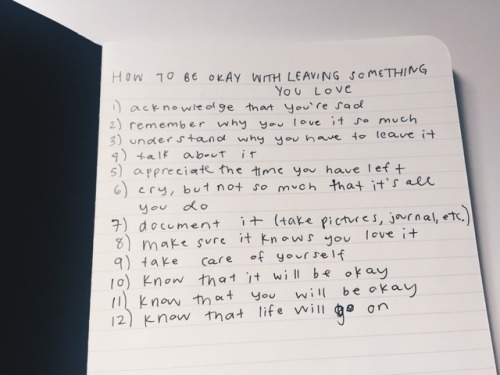 HOW TO BE OKAY WITH LEAVING SOMETHING
YOU LOVE
1) acknowledge that you're sad
2) remember why you love it so much
3) understand why you have to leave it
4) talk about it
5) appreciate the time you have left
6) cry, but not so much that it's all
you do
7) document it (take pictures, journal, etc.)
8) make sure it knows you love it
9) take care of yourself
10) know that it will be okay
11) know that you will be okay
12) know that life will go on